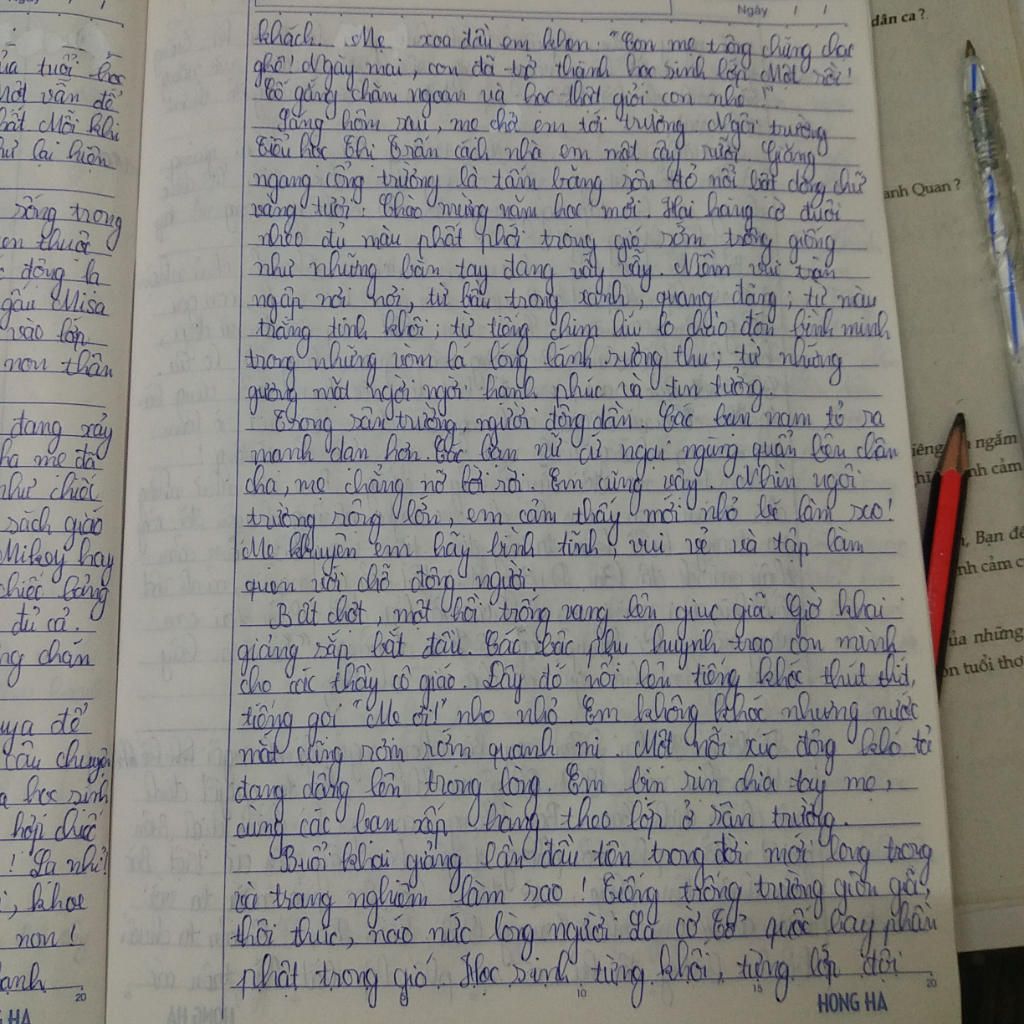 Ngày / /
khách. Mẹ xoa đầu em khen: "Con mẹ trông chững chạc
ghê! Ngày mai, con đã trở thành học sinh lớp Một rồi!
Cố gắng chăm ngoan và học thật giỏi con nhé!".
Sáng hôm sau, mẹ chở em tới trường. Ngôi trường
Tiểu học Thị Trấn cách nhà em một cây rưỡi. Giăng
ngang cổng trường là tấm băng rôn đỏ nổi bật dòng chữ
vàng tươi: Chào mừng năm học mới. Hai hàng cờ đuôi
nheo đủ màu phất phới trong gió sớm trông giống
như những bàn tay đang vẫy vẫy. Niềm vui tràn
ngập nơi nơi, từ bầu trong xanh, quang đãng; từ nàu
trắng tinh khôi; từ tiếng chim líu lo chào đón bình minh
trong những vòm lá lóng lánh sương thu; từ những
gương mặt ngời ngời hạnh phúc và tin tưởng.
Trong sân trường, người đông dần. Các bạn nam tỏ ra
mạnh dạn hơn. Các bạn nữ cứ ngại ngùng quẩn bên chân
cha, mẹ chẳng nỡ rời. Em cũng vậy. Nhìn ngôi
trường rộng lớn, em cảm thấy mới nhỏ bé làm sao!
Mẹ khuyên em hãy bình tĩnh, vui vẻ và tập làm
quen với chỗ đông người.
Bất chợt, một hồi trống vang lên giục giã. Giờ khai
giảng sắp bắt đầu. Các bác phụ huynh trao con mình
cho các thầy cô giáo. Đây đó nổi lên tiếng khóc thút thít,
tiếng gọi "Mẹ ơi!" nho nhỏ. Em không khóc nhưng nước
mắt cũng rơm rớm quanh mi. Một nỗi xúc động khó tả
đang dâng lên trong lòng. Em bịn rịn chia tay mẹ,
cùng các bạn xếp hàng theo lớp ở sân trường.
Buổi khai giảng lần đầu tên trong đời mới long trọng
và trang nghiêm làm sao! Tiếng trống trường giòn giã,
thôi thúc, náo nức lòng người. Lá cờ Tổ quốc bay phần
phật trong gió. Học sinh từng khối, từng lớp đội
10 15 20
HONG HA
tuổi học
vấn đề
lại hiện
sống trong
thuộc
đồng la
gấu Misa
vào lớp
non thân
đang xảy
cha mẹ đã
như chiếc
sách giáo
Mikey hay
chiếc bảng
đủ cả.
chắn
để
câu chuyện
học sinh
chiếc
! La nhỉ!
, khoe
non!
20
HA
dân ca ?
anh Quan ?
ngắm
nh cảm
, Bạn đế
nh cảm c
ủa những
ôn tuổi thơ